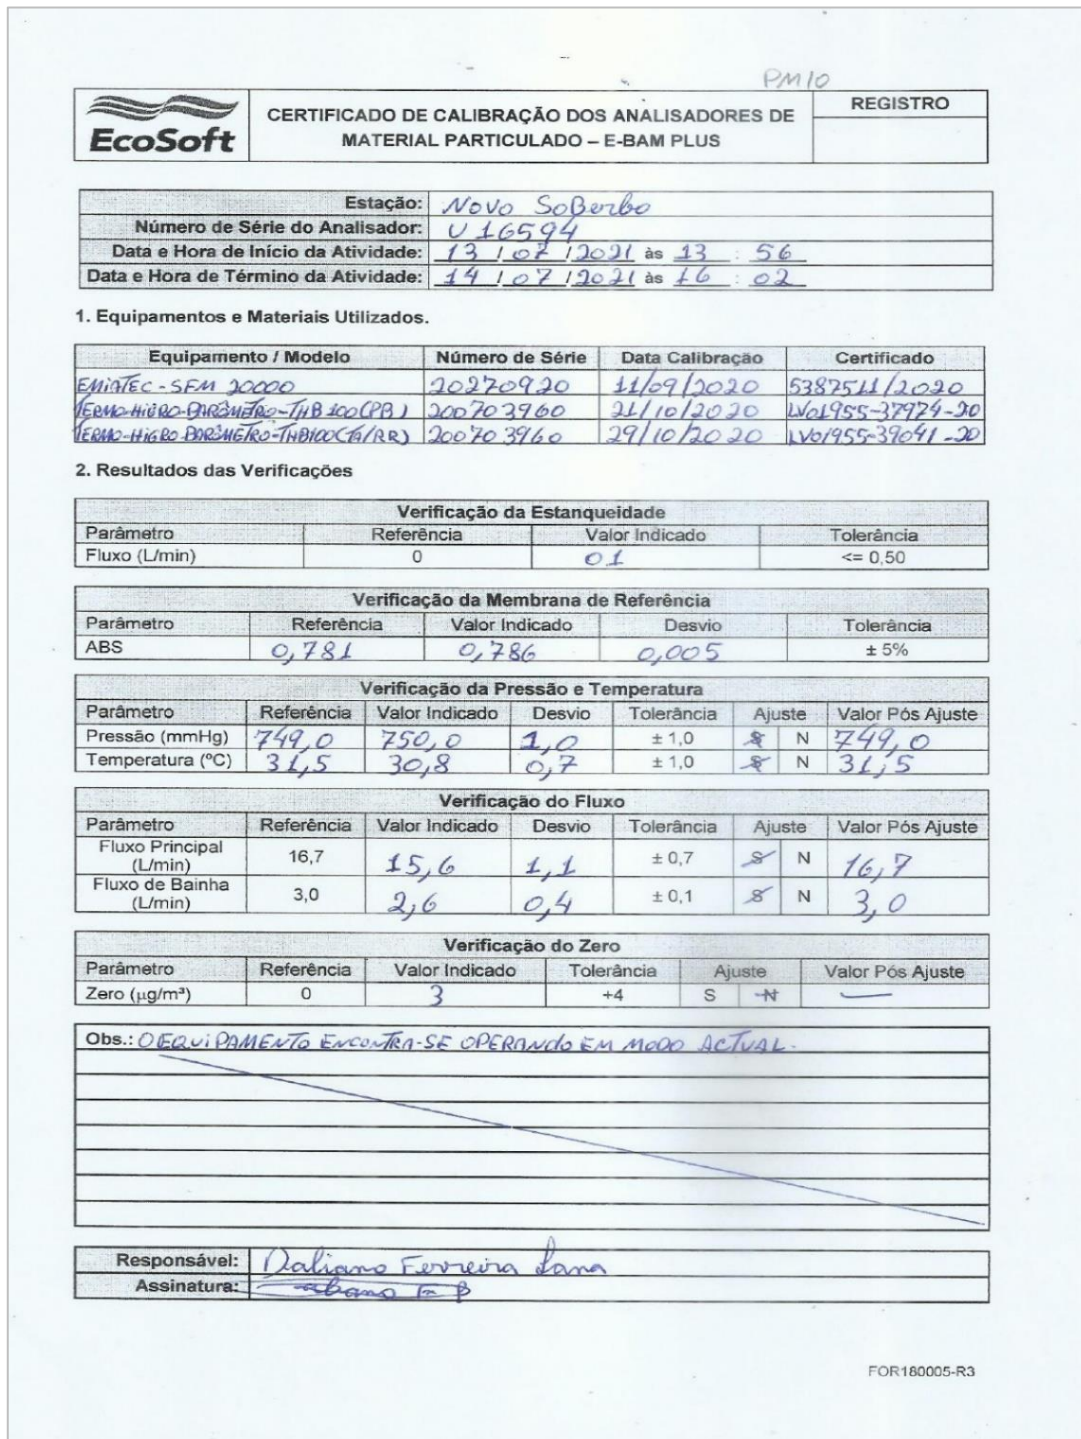 PM10
EcoSoft
CERTIFICADO DE CALIBRAÇÃO DOS ANALISADORES DE
MATERIAL PARTICULADO – E-BAM PLUS
REGISTRO
Estação: Novo SoBerbo
Número de Série do Analisador: U 16594
Data e Hora de Início da Atividade: 13 / 07 / 2021 às 13 : 56
Data e Hora de Término da Atividade: 14 / 07 / 2021 às 16 : 02
1. Equipamentos e Materiais Utilizados.
Equipamento / Modelo Número de Série Data Calibração Certificado
EMiATEC - SFM 20000 20270920 11/09/2020 5387511/2020
TERMO-HIGRO-BARÔMETRO-THB 100 (PB) 200703960 21/10/2020 LV01955-37974-20
TERMO-HIGRO BARÔMETRO-THB100 (TA/RR) 200703960 29/10/2020 LV01955-39041-20
2. Resultados das Verificações
Verificação da Estanqueidade
Parâmetro Referência Valor Indicado Tolerância
Fluxo (L/min) 0 01 <= 0,50
Verificação da Membrana de Referência
Parâmetro Referência Valor Indicado Desvio Tolerância
ABS 0,781 0,786 0,005 ± 5%
Verificação da Pressão e Temperatura
Parâmetro Referência Valor Indicado Desvio Tolerância Ajuste Valor Pós Ajuste
Pressão (mmHg) 749,0 750,0 1,0 ± 1,0 S N 749,0
Temperatura (ºC) 31,5 30,8 0,7 ± 1,0 S N 31,5
Verificação do Fluxo
Parâmetro Referência Valor Indicado Desvio Tolerância Ajuste Valor Pós Ajuste
Fluxo Principal
(L/min) 16,7 15,6 1,1 ± 0,7 S N 16,7
Fluxo de Bainha
(L/min) 3,0 2,6 0,4 ± 0,1 S N 3,0
Verificação do Zero
Parâmetro Referência Valor Indicado Tolerância Ajuste Valor Pós Ajuste
Zero (µg/m³) 0 3 +4 S N —
Obs.: O EQUiPAMENTO ENCONTRA-SE OPERANDO EM MODO ACTUAL.
Responsável: Daliano Ferreira Lana
Assinatura:
FOR180005-R3